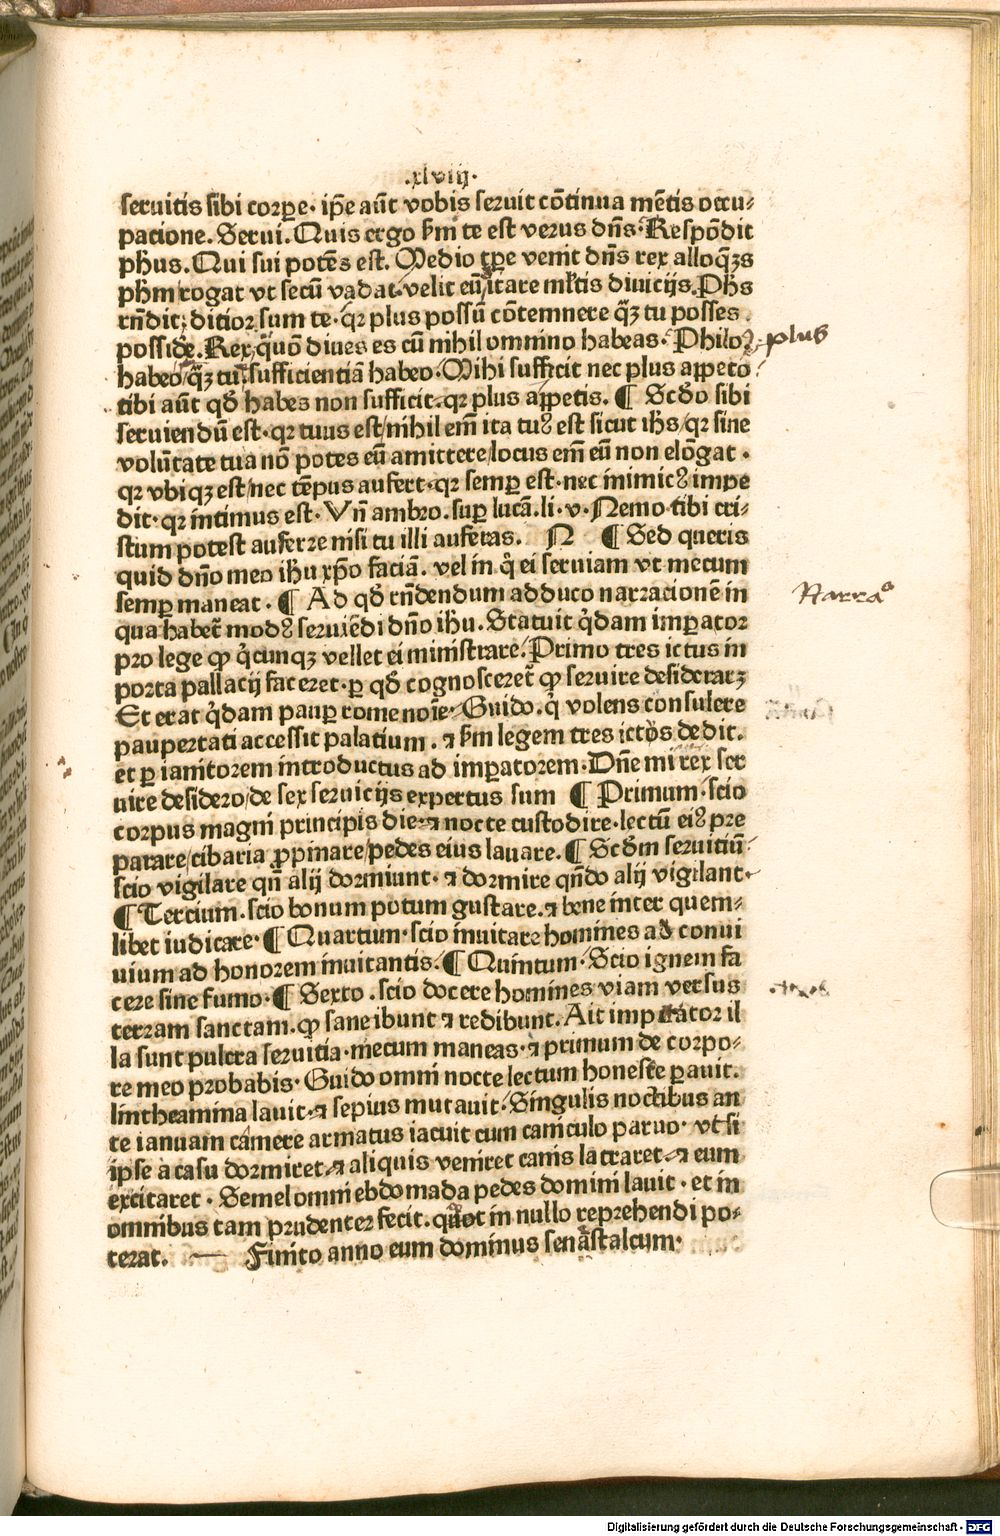 .xlviij.
seruitis sibi corpꝑe· ip̄e aūt vobis seruit cōtinua mētis occu⸗
pacione. Serui. Quis ergo ẜm te est verus dn̄s· Respōdit
ph̄us. Qui sui potēs est. Medio tp̄e venit dn̄s rex alloqꝫs
ph̄m rogat vt secū vadat· velit eū itare ml̄tis diuicijs. Ph̄s
rn̄dit; ditior sum te· qꝛ plus possū cōtemnere q̄ꝫ tu posses
possidē. Rex, q̄uō diues es cū nihil omnino habeas· Philoꝰ· plus
habeo/q̄ꝫ tu/sufficientiā habeo· Mihi sufficit nec plus appeto
tibi aūt qđ habes non sufficit· qꝛ plus appetis. ¶ Scđo sibi
seruiendū est· qꝛ tuus est/nihil em̄ ita tuꝰ est sicut ih̄s/qꝛ sine
volūtate tua nō potes eū amittere/locus em̄ eū non elōgat·
qꝛ vbiqꝫ est/nec tēpus aufert· qꝛ semꝑ est· nec inimicꝰ impe
dit· qꝛ intimus est· Vn̄ ambro. suꝑ lucā. li· v· Nemo tibi cri⸗
stum potest auferre nisi tu illi auferas. N ¶ Sed queris
quid dn̄o meo ih̄u xp̄o faciā. vel in q̄ ei seruiam vt mecum
semꝑ maneat. ¶ Ad qđ rn̄dendum adduco narracionē in
Narraº
qua habet̄ modꝰ seruiēdi dn̄o ih̄u. Statuit q̄dam imꝑator
pro lege ꝙ q̄cunqꝫ vellet ei ministrare· Primo tres ictus in
porta pallacij faceret· ꝑ qđ cognosceret̄ ꝙ seruire desideraꝛꝫ
Et erat q̄dam pauꝑ rome noīe· Guido· q̄ volens consulere
paupertati accessit palatium. ⁊ ẜm legem tres ictꝰs dedit.
et ꝑ ianitorem introductus ad imꝑatorem· Dn̄e mi rex ser
uire desidero/de sex seruicijs expertus sum ¶ Primum· scio
corpus magni principis die· ⁊ nocte custodire· lectū eiꝰ pre
parare/cibaria ꝓpinare/pedes eius lauare. ¶ Scđm seruitiū·
scio vigilare qn̄ alij dormiunt· ⁊ dormire qn̄do alij vigilant·
¶ Tercium. scio bonum potum gustare. ⁊ bene inter quem⸗
libet iudicare· ¶ Quartum· scio inuitare homines ad conui
uium ad honorem inuitantis. ¶ Quintum· Scio ignem fa
cere sine fumo· ¶ Sexto. scio docere homines viam versus
terram sanctam. ꝙ sane ibunt ⁊ redibunt. Ait imperator il
la sunt pulcra seruitia· mecum maneas· ⁊ primum de corpo⸗
re meo probabis· Guido omni nocte lectum honeste ꝑauit.
lintheamina lauit· ⁊ sepius mutauit· Singulis noctibus an
te ianuam camere armatus iacuit cum caniculo paruo· vt si
ipse a casu dormiret· ⁊ aliquis veniret canis latraret· ⁊ eum
excitaret· Semel omni ebdomada pedes domini lauit· et in
omnibus tam prudenter fecit. quot in nullo reprehendi po⸗
terat. — Finito anno eum dominus senastalcum·
Digitalisierung gefördert durch die Deutsche Forschungsgemeinschaft - DFG